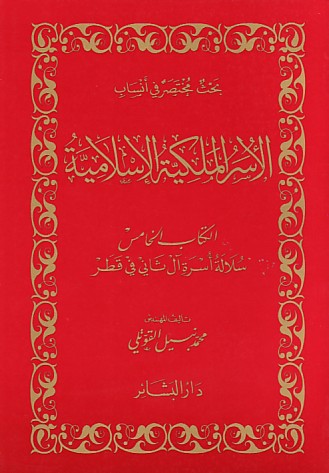 بحث مختصر في أنساب
الأسر الملكية الإسلامية
الكتاب الخامس
سلالة أسرة آل ثاني في قطر
تأليف المهندس
محمد نبيل القوتلي
دار البشائر